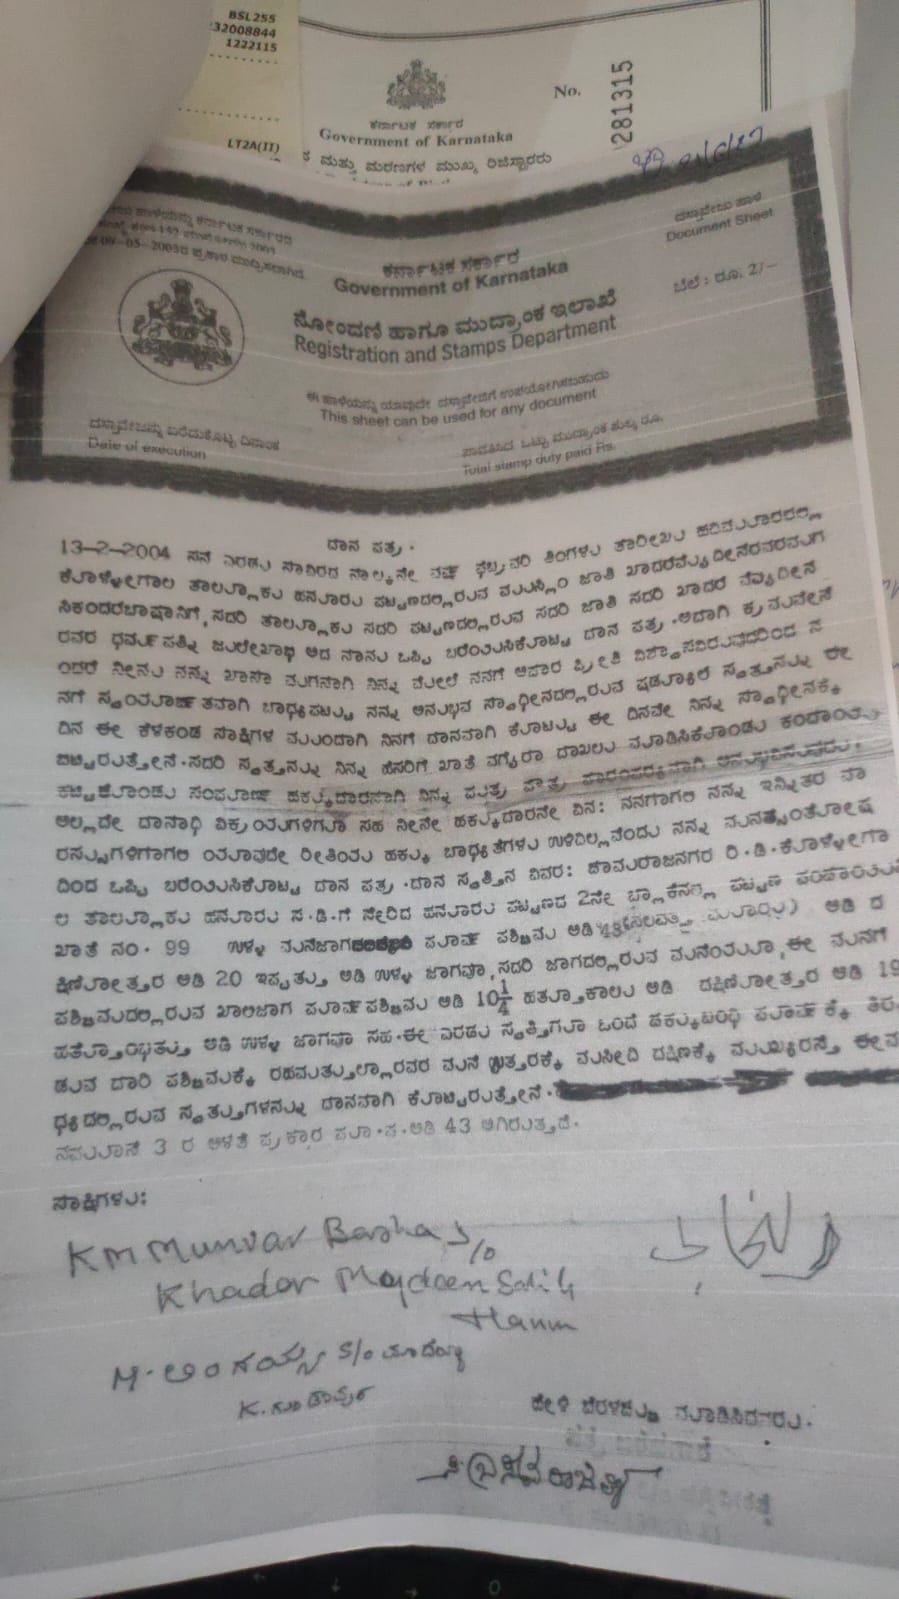 BSL255
232008844
1222115
LT2A(II)
ಕರ್ನಾಟಕ ಸರ್ಕಾರ
Government of Karnataka
No. 281315
ಮತ್ತು ಮರಣಗಳ ಮುಖ್ಯ ರಿಜಿಸ್ಟ್ರಾರರು
ದಸ್ತಾವೇಜು ಹಾಳೆ
Document Sheet
ಕರ್ನಾಟಕ ಸರ್ಕಾರ
Government of Karnataka
ಬೆಲೆ : ರೂ. 2/-
ನೋಂದಣಿ ಹಾಗೂ ಮುದ್ರಾಂಕ ಇಲಾಖೆ
Registration and Stamps Department
ಈ ಹಾಳೆಯನ್ನು ಯಾವುದೇ ದಸ್ತಾವೇಜಿಗೆ ಉಪಯೋಗಿಸಬಹುದು
This sheet can be used for any document
ದಸ್ತಾವೇಜನ್ನು ಬರೆದುಕೊಟ್ಟ ದಿನಾಂಕ
Date of execution
ಪಾವತಿಸಿದ ಒಟ್ಟು ಮುದ್ರಾಂಕ ಶುಲ್ಕ ರೂ.
Total stamp duty paid Rs.
ದಾನ ಪತ್ರ.
13-2-2004 ನೆ ಎರಡು ಸಾವಿರದ ನಾಲ್ಕನೇ ವರ್ಷ ಫೆಬ್ರವರಿ ತಿಂಗಳು ತಾರೀಖು ಹದಿಮೂರರಲ್ಲಿ
ಕೊಳ್ಳೇಗಾಲ ತಾಲ್ಲೂಕು ಹನೂರು ಪಟ್ಟಣದಲ್ಲಿರುವ ಮುಸ್ಲಿಂ ಜಾತಿ
ಸಿಕಂದರಬಾಷಾನಿಗೆ, ಸದರಿ ತಾಲ್ಲೂಕು ಸದರಿ ಪಟ್ಟಣದಲ್ಲಿರುವ ಸದರಿ ಜಾತಿ ಸದರಿ
ರವರ ಧರ್ಮಪತ್ನಿ ಜುಲೇಖಾಬಿ ಆದ ನಾನು ಒಪ್ಪಿ ಬರೆಯಿಸಿಕೊಟ್ಟ ದಾನ ಪತ್ರ. ಅದಾಗಿ ಕ್ರಮವೇನೆ
ಂದರೆ ನೀನು ನನ್ನ ಖಾಸಾ ಮಗನಾಗಿ ನಿನ್ನ ಮೇಲೆ ನನಗೆ ಅಪಾರ ಪ್ರೀತಿ ವಿಶ್ವಾಸವಿರುವುದರಿಂದ ನ
ನಗೆ ಸ್ವಯಾರ್ಜಿತವಾಗಿ ಬಾಧ್ಯಪಟ್ಟು ನನ್ನ ಅನುಭವ ಸ್ವಾಧೀನದಲ್ಲಿರುವ ಸ್ವತ್ತನ್ನು ಈ
ದಿನ ಈ ಕೆಳಕಂಡ ಸಾಕ್ಷಿಗಳ ಮುಂದಾಗಿ ನಿನಗೆ ದಾನವಾಗಿ ಕೊಟ್ಟು ಈ ದಿನವೇ ನಿನ್ನ ಸ್ವಾಧೀನಕ್ಕೆ
ಬಿಟ್ಟಿರುತ್ತೇನೆ. ಸದರಿ ಸ್ವತ್ತನ್ನು ನಿನ್ನ ಹೆಸರಿಗೆ ಖಾತೆ ವಗೈರಾ ದಾಖಲು ಮಾಡಿಸಿಕೊಂಡು ಕಂದಾಯ
ಕಟ್ಟಿಕೊಂಡು ಸಂಪೂರ್ಣ ಹಕ್ಕುದಾರನಾಗಿ ನಿನ್ನ ಪುತ್ರ ಪೌತ್ರ ಪಾರಂಪರ್ಯವಾಗಿ ಅನುಭವಿಸುವುದು.
ಅಲ್ಲದೇ ದಾನಾಧಿ ವಿಕ್ರಯಗಳಿಗೂ ಸಹ ನೀನೇ ಹಕ್ಕುದಾರನೇ ವಿನಃ ನನಗಾಗಲಿ ನನ್ನ ಇನ್ನಿತರ ವಾ
ರಸುಗಳಿಗಾಗಲಿ ಯಾವುದೇ ರೀತಿಯ ಹಕ್ಕು ಬಾಧ್ಯತೆಗಳು ಉಳಿದಿಲ್ಲವೆಂದು ನನ್ನ ಮನಸ್ಸಂತೋಷ
ದಿಂದ ಒಪ್ಪಿ ಬರೆಯಿಸಿಕೊಟ್ಟ ದಾನ ಪತ್ರ. ದಾನ ಸ್ವತ್ತಿನ ವಿವರ: ಚಾಮರಾಜನಗರ ರಿ.ಡಿ. ಕೊಳ್ಳೇಗಾ
ಲ ತಾಲ್ಲೂಕು ಹನೂರು ಸ.ಡಿ.ಗೆ ಸೇರಿದ ಹನೂರು ಪಟ್ಟಣದ 2ನೇ ಪಟ್ಟಣ ಪಂಚಾಯಿತಿ
ಖಾತೆ ನಂ. 99 ಉಳ್ಳ ಮನೆಜಾಗ ಪೂರ್ವ ಪಶ್ಚಿಮ ಅಡಿ 43 ಅಡಿ ದ
ಕ್ಷಿಣೋತ್ತರ ಅಡಿ 20 ಇಪ್ಪತ್ತು ಅಡಿ ಉಳ್ಳ ಜಾಗವೂ, ಸದರಿ ಜಾಗದಲ್ಲಿರುವ ಮನೆಯೂ, ಈ ಮನೆಗೆ
ಪಶ್ಚಿಮದಲ್ಲಿರುವ ಖಾಲಿಜಾಗ ಪೂರ್ವ ಪಶ್ಚಿಮ ಅಡಿ 10¼ ಹತ್ತೂಕಾಲು ಅಡಿ ದಕ್ಷಿಣೋತ್ತರ ಅಡಿ 19
ಹತ್ತೊಂಭತ್ತು ಅಡಿ ಉಳ್ಳ ಜಾಗವೂ ಸಹ. ಈ ಎರಡು ಸ್ವತ್ತಿಗೂ ಒಂದೆ ಚಕ್ಕುಬಂಧಿ ಪೂರ್ವಕ್ಕೆ ತಿರು
ಡುವ ದಾರಿ ಪಶ್ಚಿಮಕ್ಕೆ ರಹಮತ್ತುಲ್ಲಾರವರ ಮನೆ ಉತ್ತರಕ್ಕೆ ಮಸೀದಿ ದಕ್ಷಿಣಕ್ಕೆ ಮುಖ್ಯರಸ್ತೆ ಈ ಮ
ಧ್ಯದಲ್ಲಿರುವ ಸ್ವತ್ತುಗಳನ್ನು ದಾನವಾಗಿ ಕೊಟ್ಟಿರುತ್ತೇನೆ.
ನಮೂನೆ 3 ರ ಅಳತೆ ಪ್ರಕಾರ ಪೂ.ಪ.ಅಡಿ 43 ಆಗಿರುತ್ತದೆ.
ಸಾಕ್ಷಿಗಳು:
KM Munvar Basha S/o
Khadar Moydeen
M. ಲಿಂಗಯ್ಯ S/o ಮಾದಯ್ಯ
K. ಗುಂಡಾಪುರ
ಹೇಳಿ ಬೆರಳಚ್ಚು ಮಾಡಿಸಿದವರು.